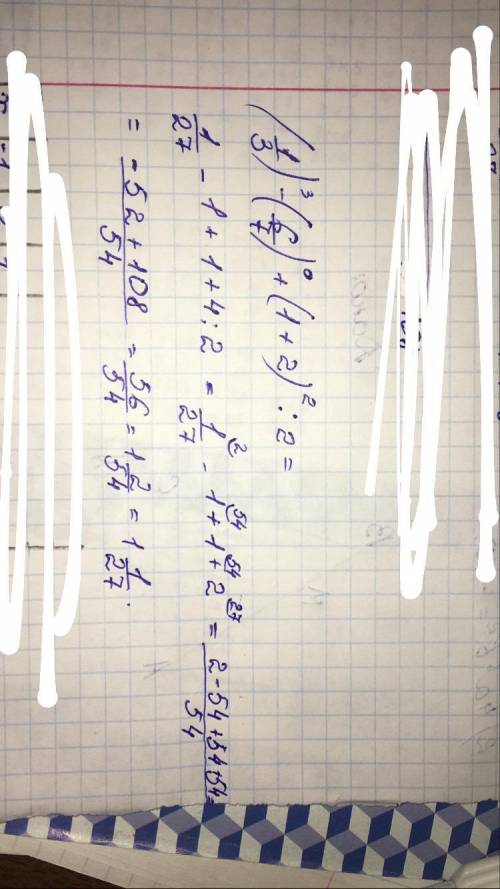 (1/3)³ - (6/7)⁰ + (1+2)² : 2 =
1/27 - 1 + 1 + 4 : 2 = 1/27 ² - 1 ⁵⁴ + 1 ⁵⁴ + 2 ²⁷ = (2 - 54 + 54 + 54)/54 =
= (-52 + 108)/54 = 56/54 = 1 2/54 = 1 1/27.